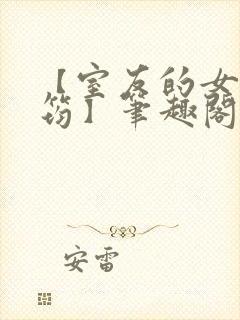 【室友的女
筠】笔趣阁
安雷